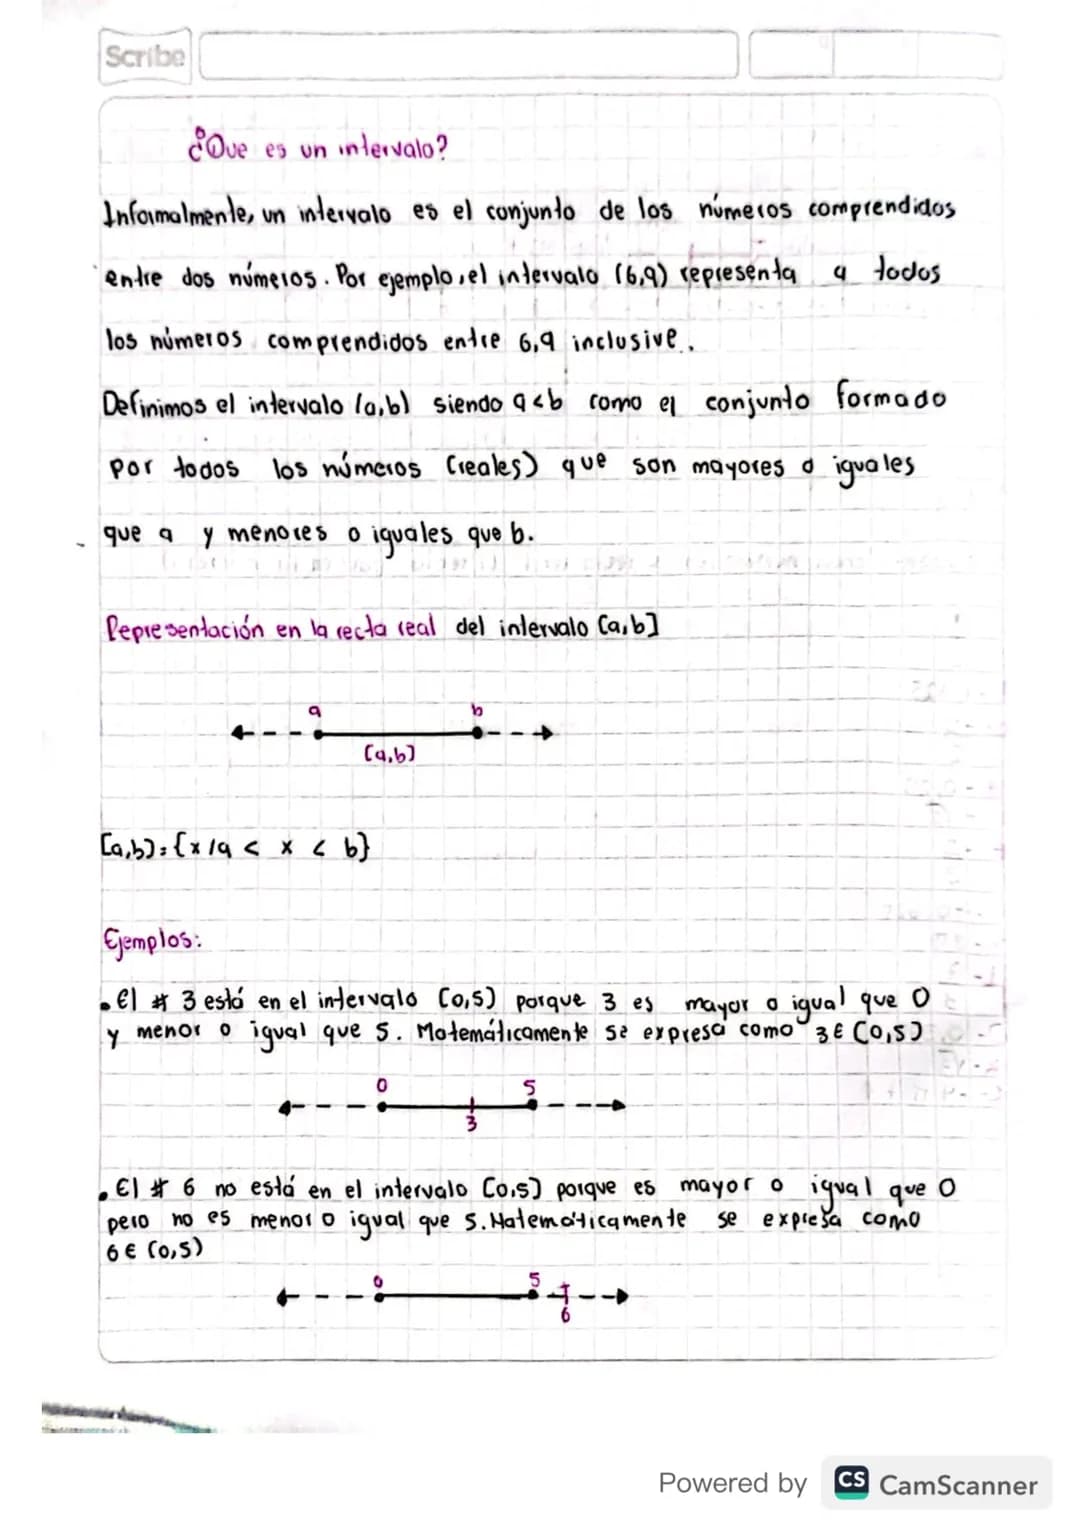 Scribe
¿Que es un intervalo?
Informalmente, un intervalo es el conjunto de los números comprendidos
entre dos números. Por ejemplo, el intervalo (6,9) representa a todos
los números comprendidos entre 6,9 inclusive.
Definimos el intervalo (a,b) siendo a<b como el conjunto formado
por todos los números (reales) que son mayores o iguales
que a y menores o iguales que b.
Representación en la recta real del intervalo [a,b]
a b
[a,b]
[a,b]={x/a < x < b}
Ejemplos:
• El # 3 está en el intervalo [0,5) porque 3 es mayor o igual que 0
y menor o igual que 5. Matemáticamente se expresa como 3∈[0,5)
0 5
3
• El # 6 no está en el intervalo [0,5] porque es mayor o igual que 0
pero no es menor o igual que 5. Matemáticamente se expresa como
6∈(0,5)
0 5
6
Powered by CS CamScanner